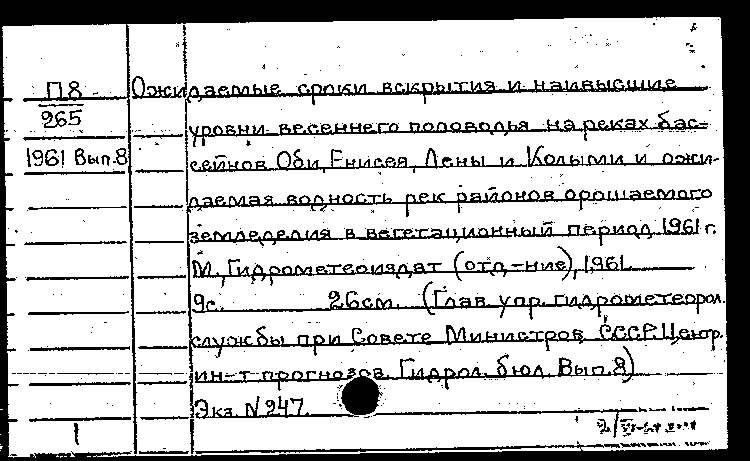 П8
265
1961 Вып.8
Ожидаемые сроки вскрытия и наивысшие
уровни весеннего половодья на реках бас-
сейнов Оби, Енисея, Лены и Колымы и ожи-
даемая водность рек районов орошаемого
земледелия в вегетационный период 1961 г.
М., Гидрометеоиздат (отд-ние), 1961.
9с. 26см. (Глав. упр. гидрометеорол.
службы при Совете Министров СССР. Центр.
ин-т прогнозов. Гидрол. бюл. Вып.8)
Экз. N 247.
1